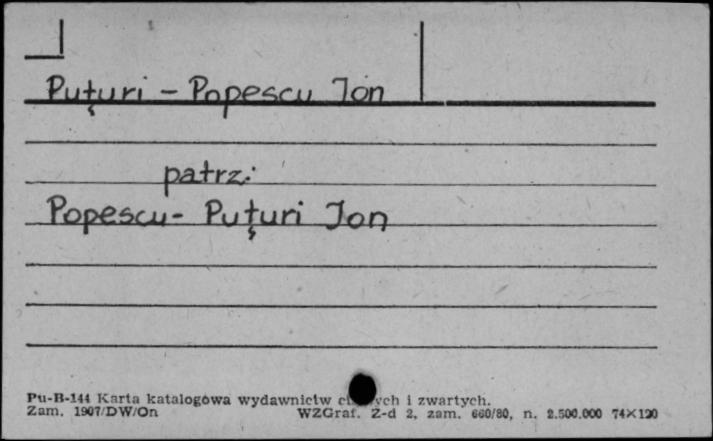 Puţuri - Popescu Jon
patrz:
Popescu- Puţuri Jon
Pu-B-144 Karta katalogowa wydawnictw i zwartych.
Zam. 1907/DW/On WZGraf. Z-d 2, zam. 660/80, n. 2.500.000 74×120